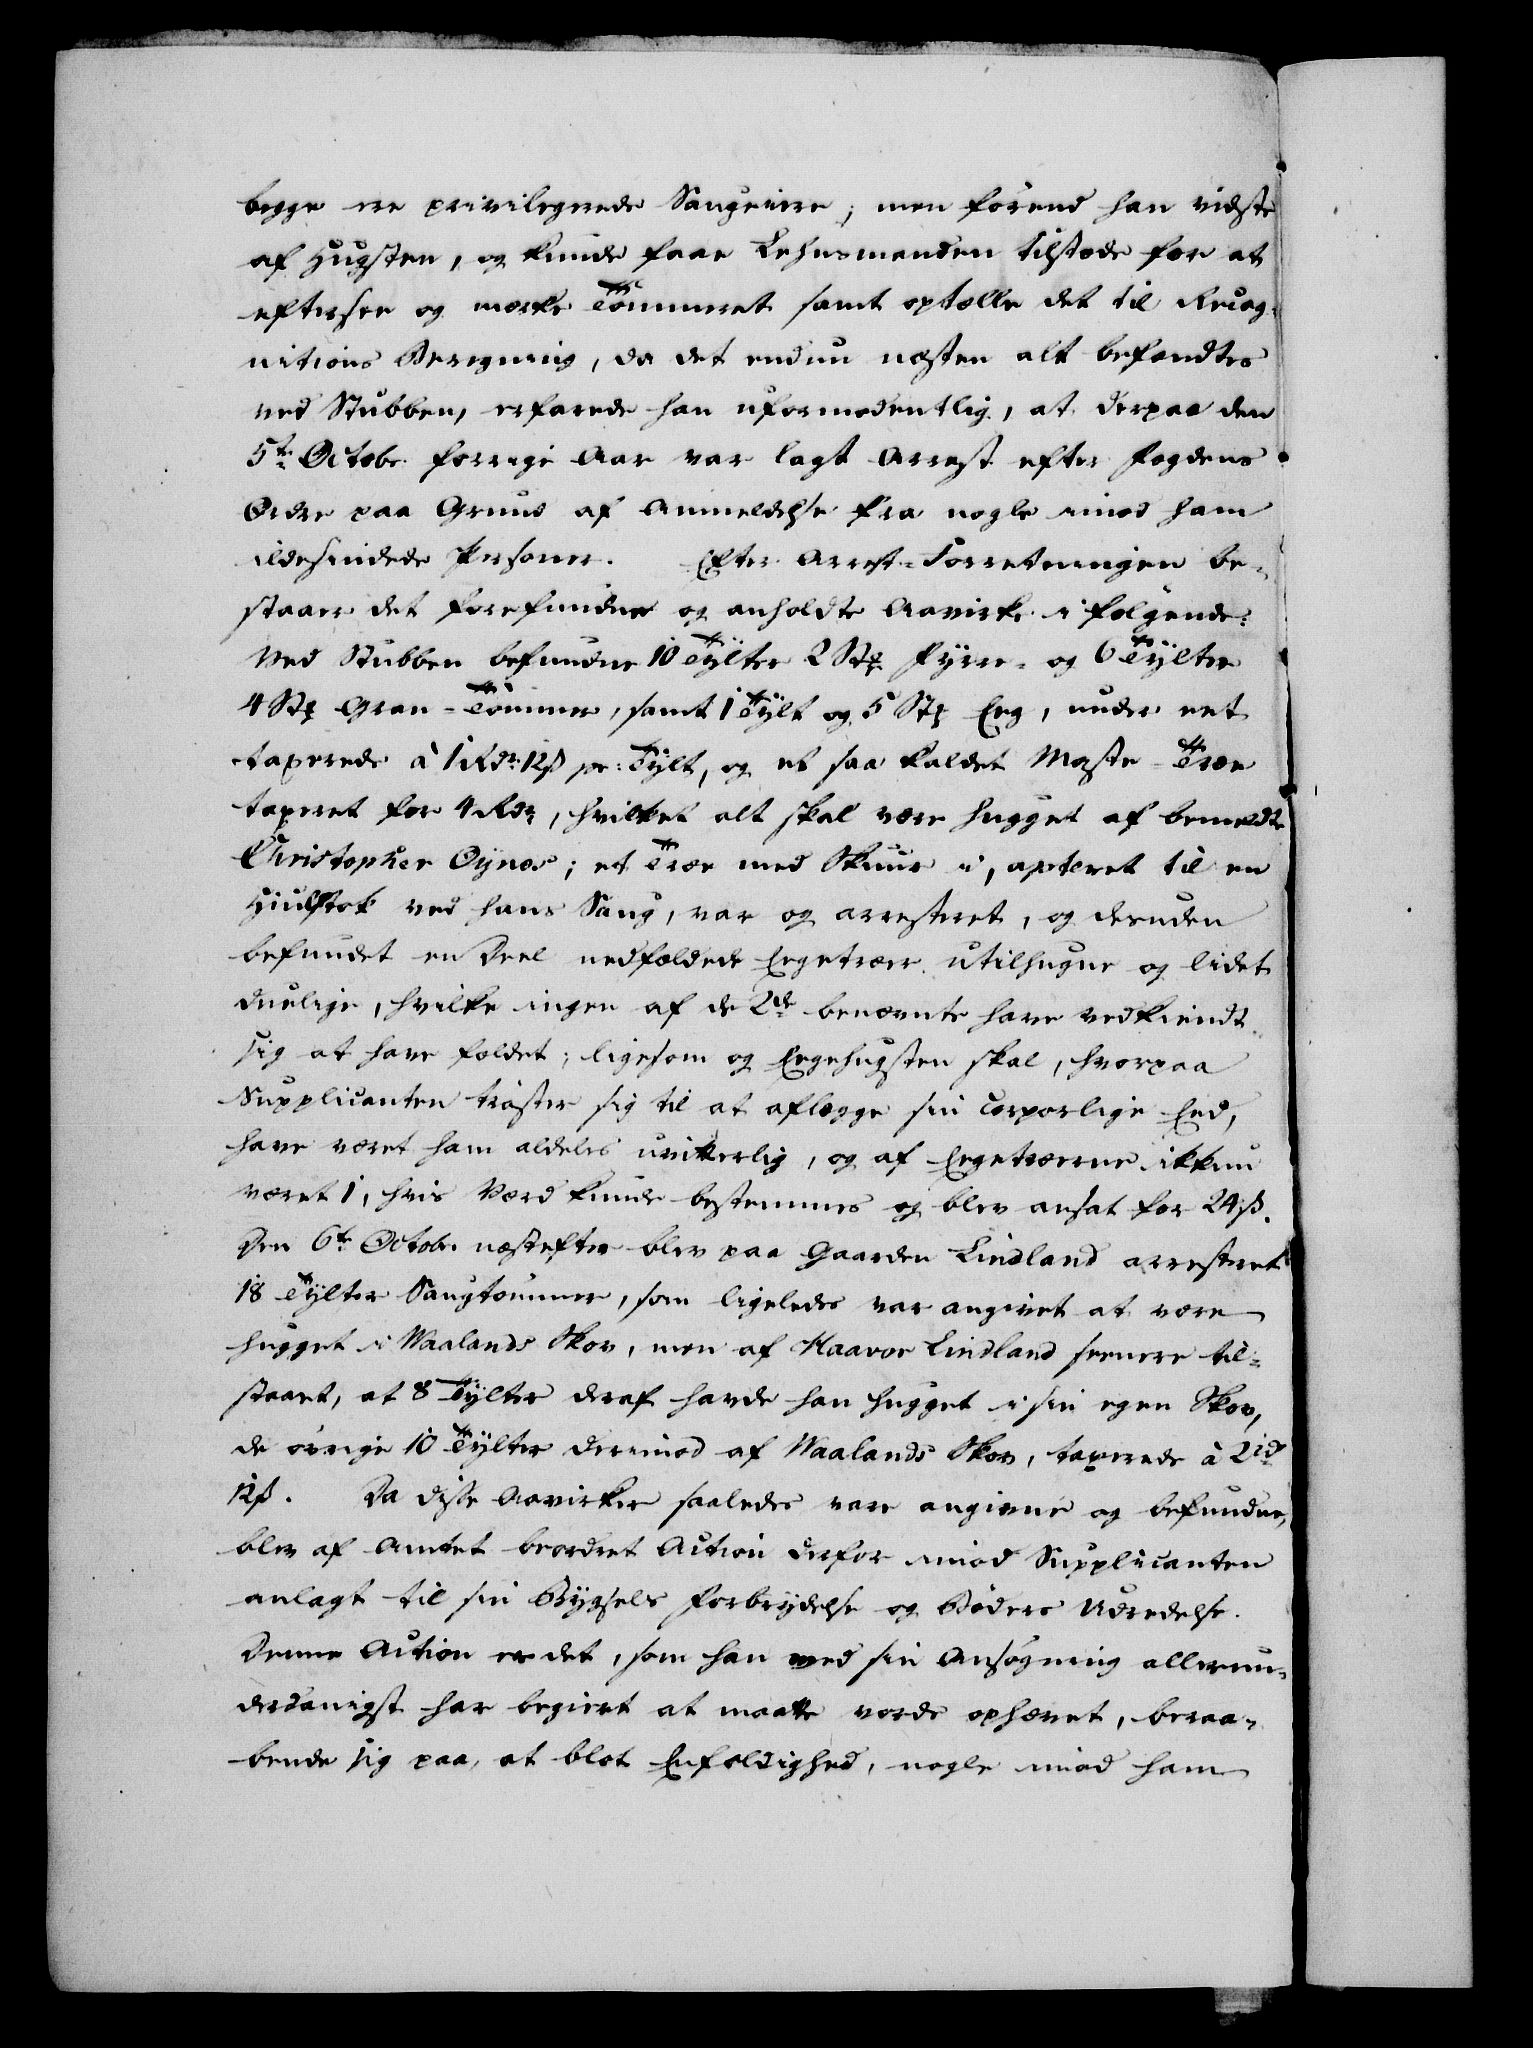 begge ere privilegerede Saugeiere; men förend han vidste
af Hugsten, og kunde faae Lehnsmanden tilstæde for at
eftersee og mærke Tömmeret samt optælle det til Recog-
nitions Beregning, da det endnu næsten alt befandtes
ved Stubben, erfarede han uformodentlig, at derpaa den
5te Octobr. forrige Aar var lagt Arrest efter Fogdens
Ordre paa Grund af Anmeldelse fra nogle imod ham
ildesindede Personer. Efter Arrest-Forretningen be-
staaer det forefundne og anholdte Aavirke i fölgende:
Ved Stubben befundne 10 Tylter 2 Stk Fyrre- og 6 Tylter
4 Stk Gran-Tömmer, samt 1 Tylt og 5 Stk Eeg, under eet
taxerede à 1 Rdr 12 ß pr: Tylt, og et saa kaldet Maste-Træe
taxeret for 4 Rdr, hvilket alt skal være hugget af bemeldte
Christopher Öynæs; et Træe med Skuur i, apteret til en
Hiulstok ved hans Saug, var og arresteret, og desuden
befundet en Deel nedfældede Egetræer utilhugne og lidet
duelige, hvilke ingen af de 2de benævnte have vedkiendt
sig at have fældet; ligesom og Eegehugsten skal, hvorpaa
Supplicanten tröster sig til at aflægge sin corporlige Eed,
have været ham aldeles uvitterlig, og af Eegetræerne ikkun
været 1, hvis Værd kunde bestemmes og blev ansat for 24 ß.
Den 6te Octobr. næstefter blev paa Gaarden Lindland arresteret
18 Tylter Saugtömmer, som ligeledes var angivet at være
hugget i Waalands Skov, men af Haavor Lindland seenere til-
staaet, at 8 Tylter deraf havde han hugget i sin egen Skov,
de övrige 10 Tylter derimod af Waalands Skov, taxerede à 2 rd
12 ß. Da disse Aavirker saaledes vare angivne og befundne,
blev af Amtet beordret Action derfor imod Supplicanten
anlagt til sin Bygsels Forbrydelse og Böders Udredelse.
Denne Action er det, som han ved sin Ansögning allerun-
derdanigst har begiert at maatte vorde ophævet, beraa-
bende sig paa, at blot Enfoldighed, nogle imod ham